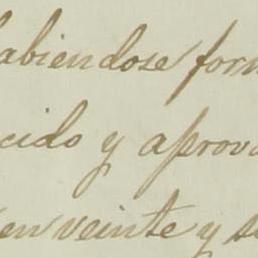 abiendose form
cido y aprova
en veinte y s